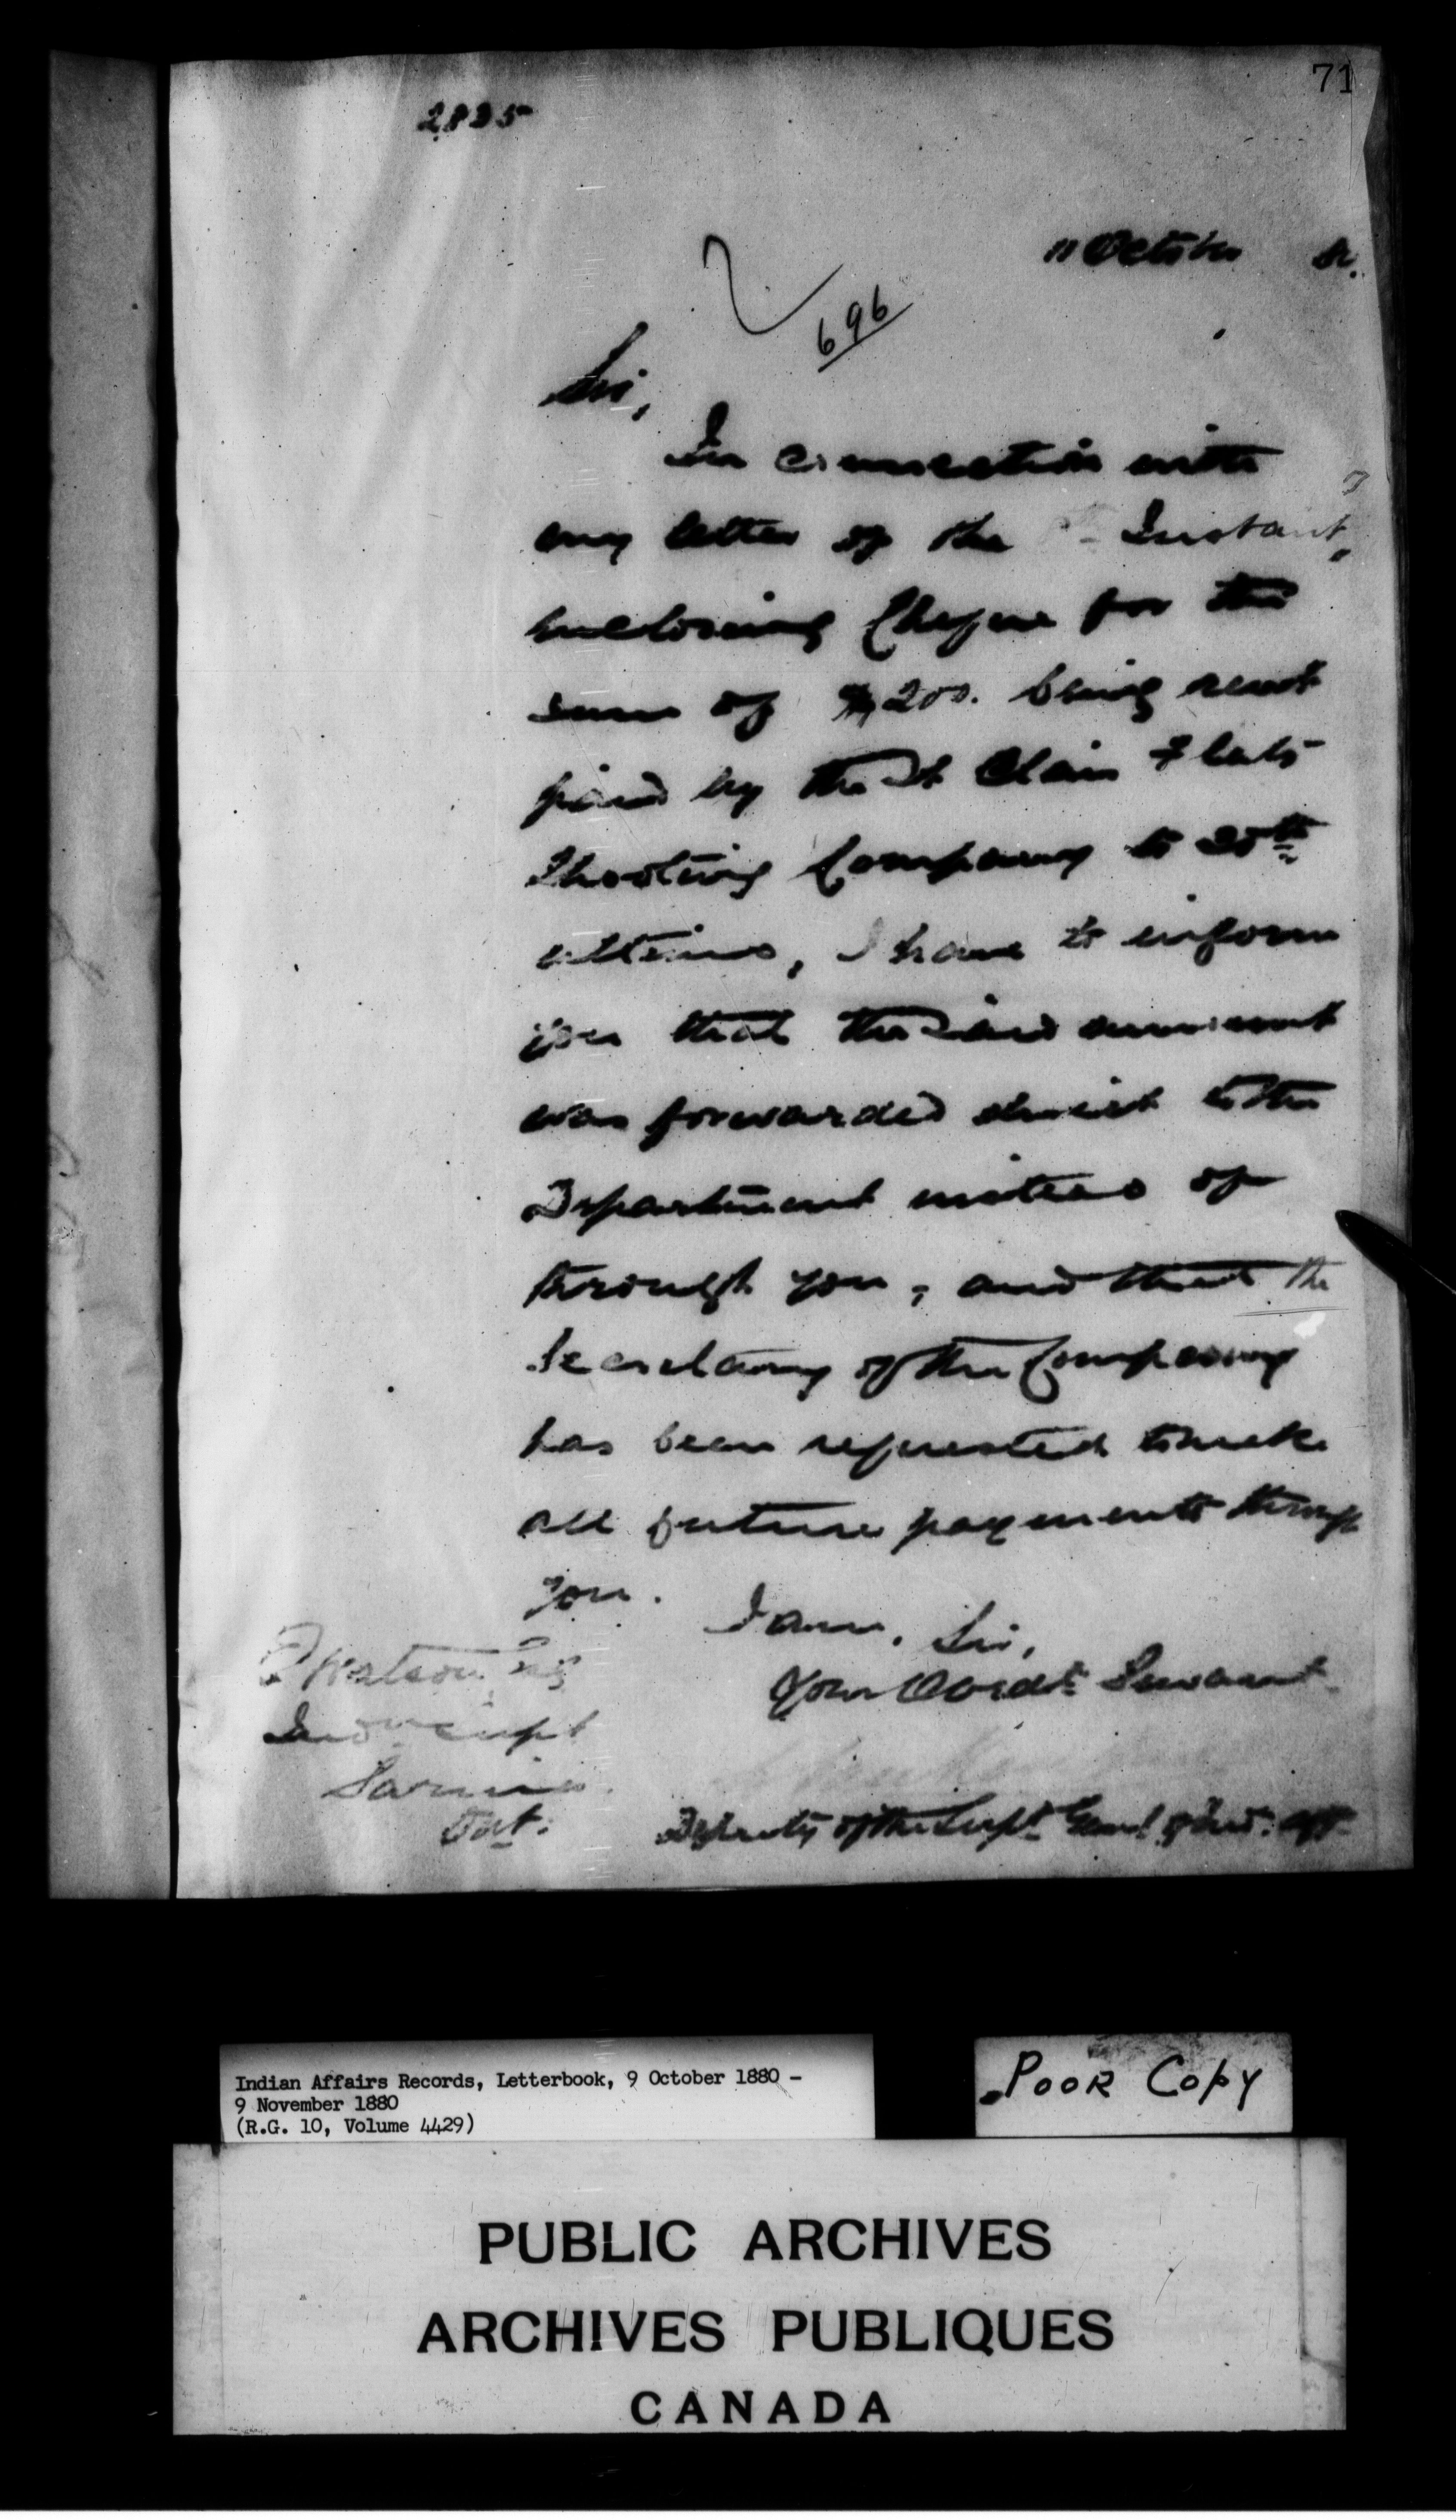 71
2835
11 October 80.
696
Sir,
In connection with
my letter of the Instant,
inclosing Cheque for the
sum of $200. being rent
paid by the St Clair Flats
Shooting Company to 20th
ultimo, I have to inform
you that the said amount
was forwarded direct to the
Department instead of
through you, and that the
Secretary of the Company
has been requested to make
all future payments through
you.
I am, Sir,
Your Obedt Servant
Watson Esq
Indn Supt
Sarnia.
Ont.
Deputy of the Supt Genl of Ind: Aff
Indian Affairs Records, Letterbook, 9 October 1880 -
9 November 1880
(R.G. 10, Volume 4429)
Poor Copy
PUBLIC ARCHIVES
ARCHIVES PUBLIQUES
CANADA